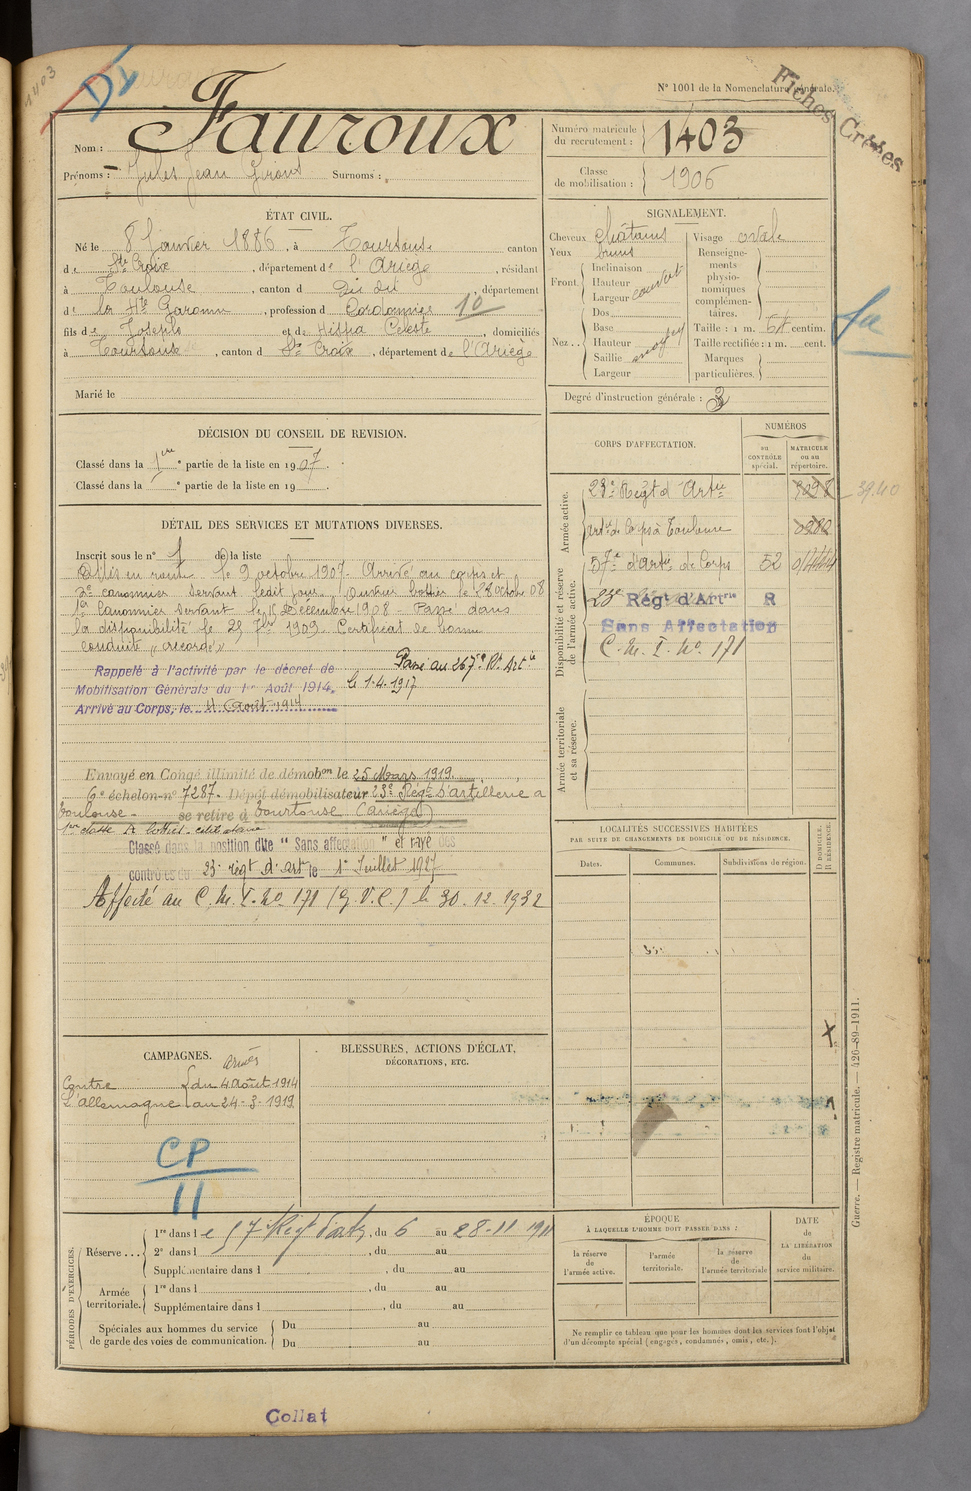 1403
N° 1001 de la Nomenclature générale.
Fiches Créées
Nom : Fauroux
Prénoms : Jules Jean Surnoms :
Numéro matricule du recrutement : 1403
Classe de mobilisation : 1906
ÉTAT CIVIL.
Né le 8 Janvier 1886, à Tourtouse canton
de Ste Croix, département de l'Ariège, résidant
à Toulouse, canton d dit dit, département
de la Hte Garonne, profession d Cordonnier 10
fils de Joseph et de Celeste, domiciliés
à Tourtouse, canton d Ste Croix, département de l'Ariège
Marié le
SIGNALEMENT.
Cheveux chatains
Yeux bruns
Front. Inclinaison
Hauteur
Largeur couvert
Nez.. Dos
Base
Hauteur moyen
Saillie
Largeur
Visage ovale
Renseignements physionomiques complémentaires.
Taille : 1 m. centim.
Taille rectifiée : 1 m. cent.
Marques particulières.
Degré d'instruction générale : 3
DÉCISION DU CONSEIL DE REVISION.
Classé dans la 1ère partie de la liste en 1907.
Classé dans la ° partie de la liste en 19
DÉTAIL DES SERVICES ET MUTATIONS DIVERSES.
Inscrit sous le n° 1 de la liste
Mis en route le 9 octobre 1907. Arrivé au corps et
2e canonnier servant ledit jour. Ouvrier bottier le 28 octobre 08
1er Canonnier servant le 15 Décembre 1908 Passé dans
la disponibilité le 25 7bre 1909. Certificat de bonne
conduite « accordé »
Rappelé à l'activité par le décret de
Mobilisation Générale du 1er Août 1914.
Arrivé au Corps, le 4 Août 1914
Passé au 267e Rt. Art ie
le 1-4-1917
Envoyé en Congé illimité de démobon le 25 Mars 1919.
6e échelon n° 7287. Dépôt démobilisateur 23e Régt d'artillerie a
Toulouse - se retire à Tourtouse (Ariège)
1er classe A bottier. célibataire
Classé dans la position dite " Sans affectation " et rayé des
contrôles du 23e régt d'art le 1er Juillet 1927
Affecté au C.M.I. No 171 (G.V.C.) le 30.12.1932
CORPS D'AFFECTATION.
NUMÉROS
au CONTRÔLE spécial.
MATRICULE ou au répertoire.
Armée active.
23e Régt d'Artie 3940
artie de Corps à Toulouse
Disponibilité et réserve de l'armée active.
57e d'artie de Corps 52
23e Régt d'Artie R
Sans Affectation
C.M.I. No. 171
Armée territoriale et sa réserve.
LOCALITÉS SUCCESSIVES HABITÉES
PAR SUITE DE CHANGEMENTS DE DOMICILE OU DE RÉSIDENCE.
Dates.
Communes.
Subdivisions de région.
D DOMICILE. R RÉSIDENCE.
CAMPAGNES.
Contre l'allemagne
armées
du 4 août 1914
au 24-3-1919
CP
11
BLESSURES, ACTIONS D'ÉCLAT,
DÉCORATIONS, ETC.
PÉRIODES D'EXERCICES.
Réserve ... 1re dans le 57 Régt d'art, du 6 au 28-11 1911
2e dans l , du au
Supplémentaire dans l , du au
Armée territoriale. 1re dans l , du au
Supplémentaire dans l , du au
Spéciales aux hommes du service de garde des voies de communication.
Du au
Du au
ÉPOQUE
À LAQUELLE L'HOMME DOIT PASSER DANS :
la réserve de l'armée active.
l'armée territoriale.
la réserve de l'armée territoriale
DATE de LA LIBÉRATION du service militaire.
Ne remplir ce tableau que pour les hommes dont les services font l'objet
d'un décompte spécial (engagés, condamnés, omis, etc.).
Guerre. — Registre matricule. — 426-89-1911.
Collat